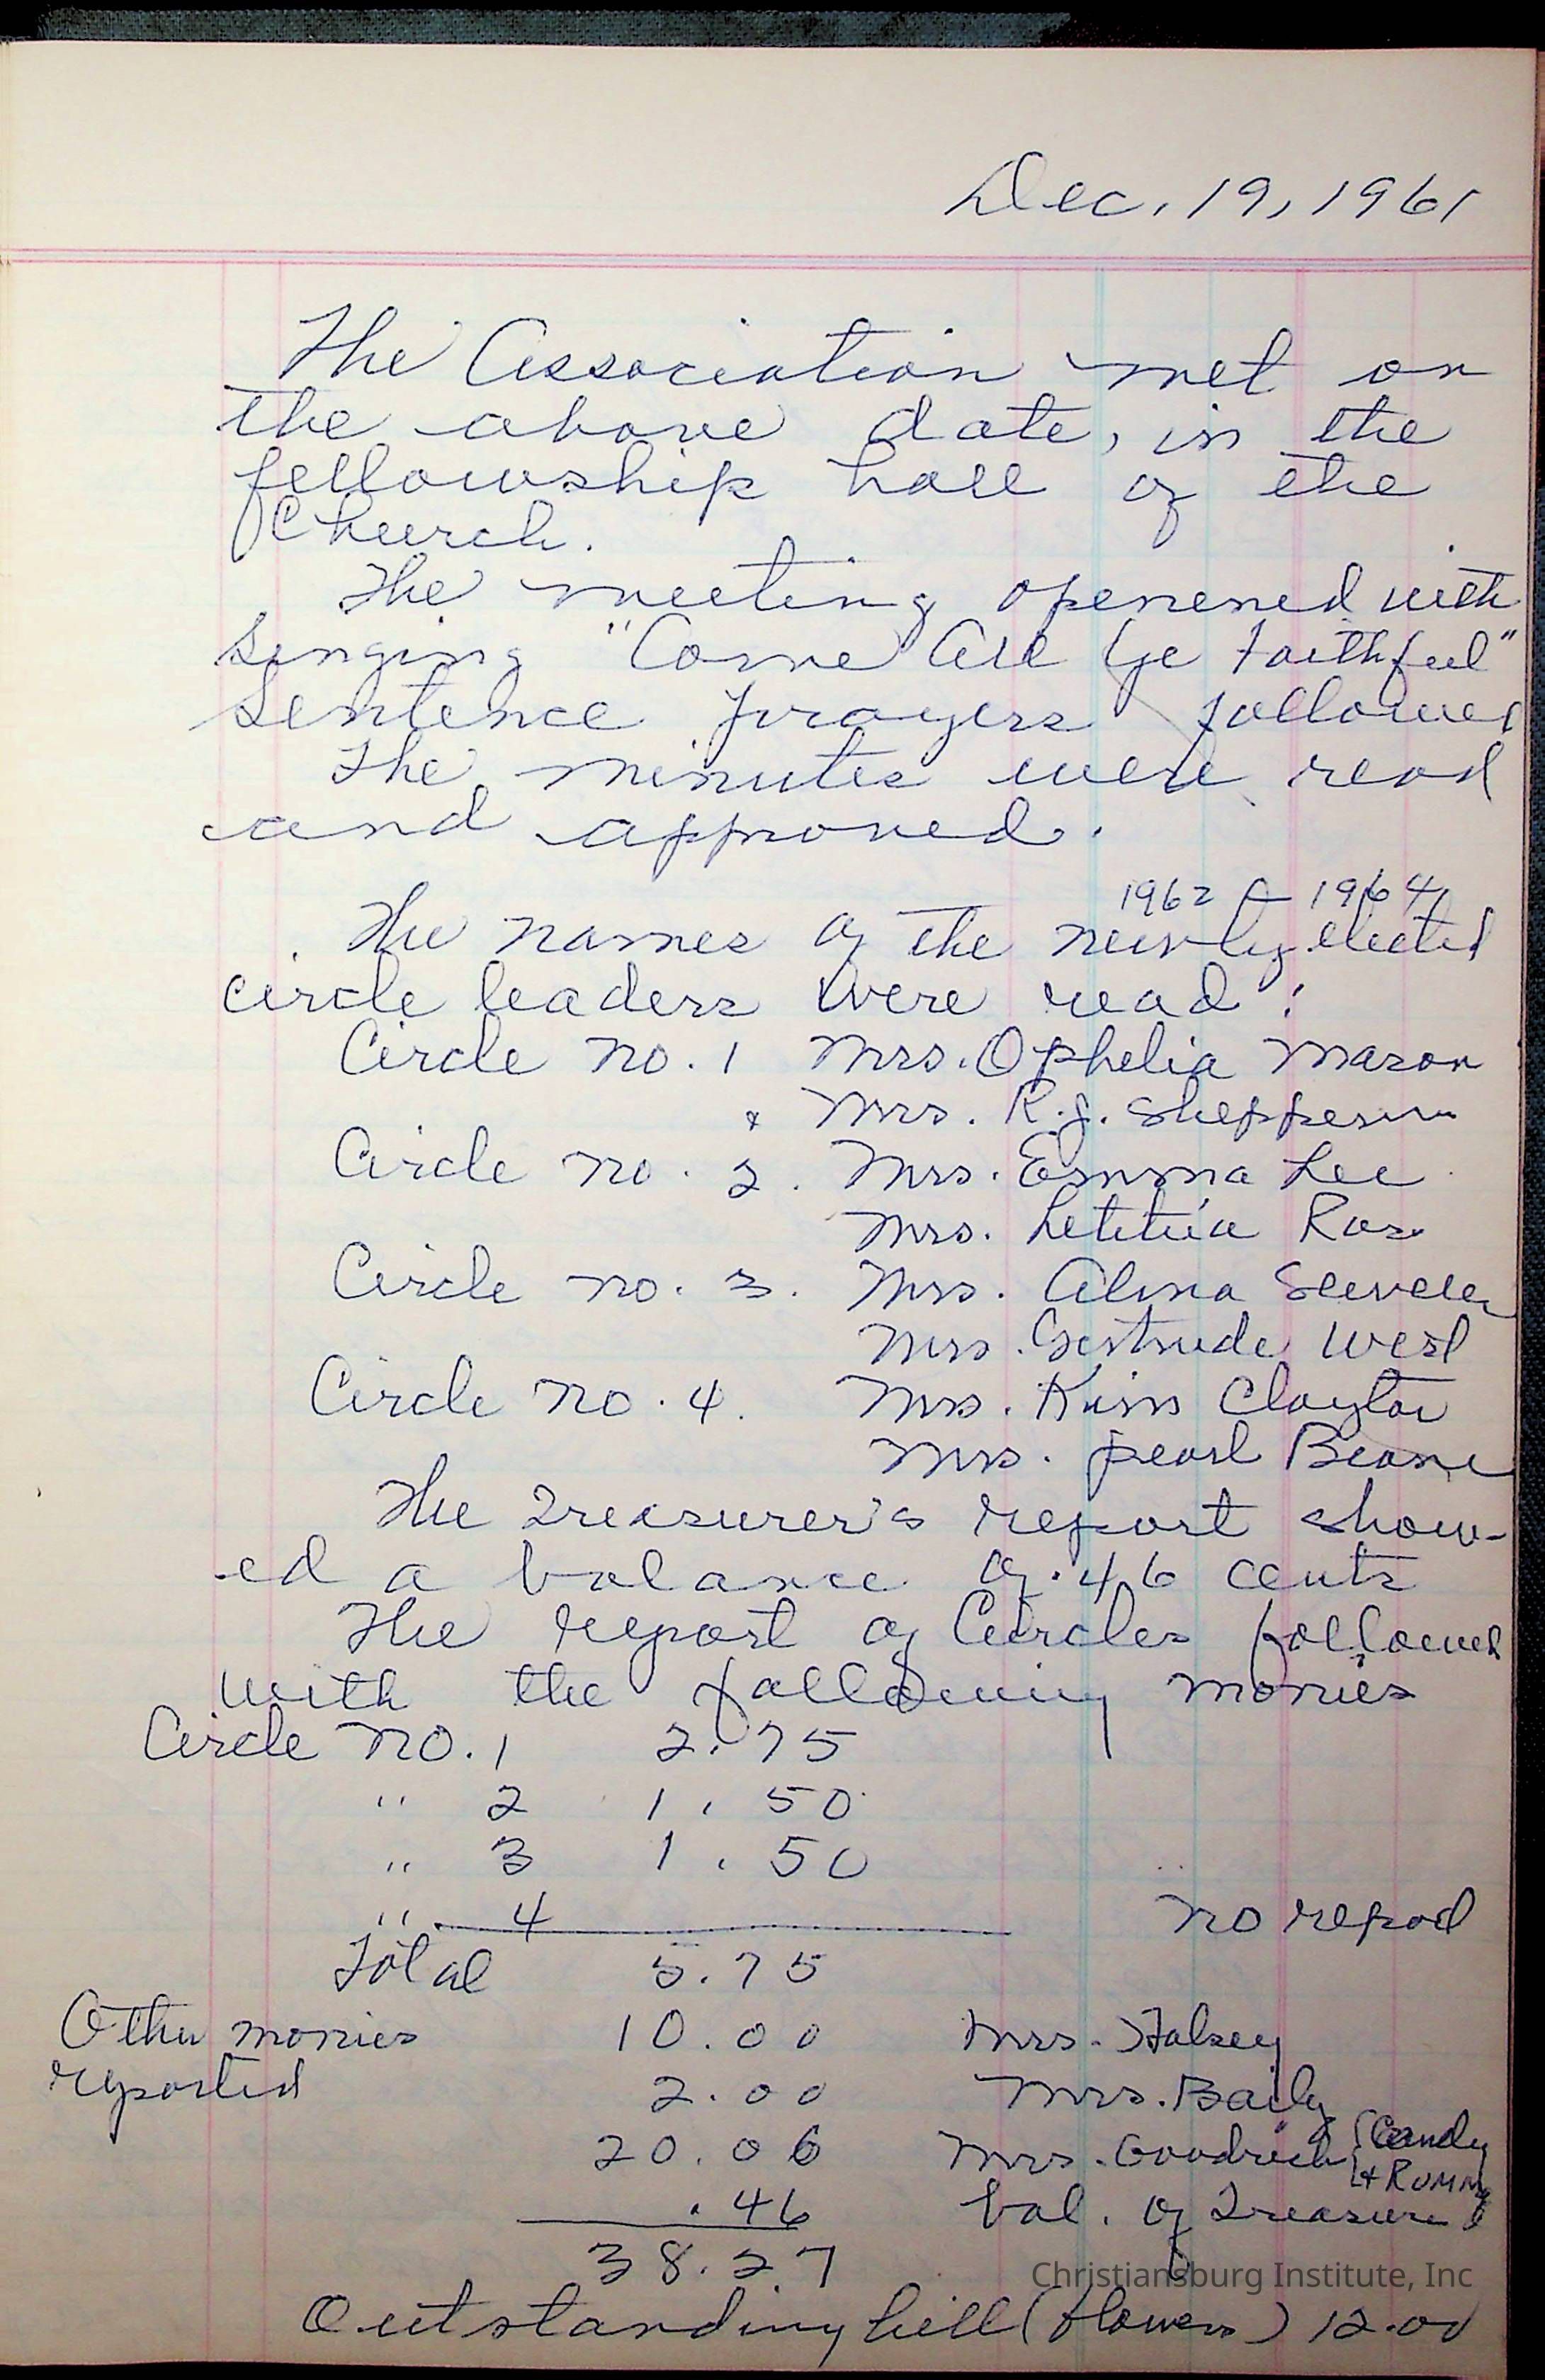 Dec. 19, 1961
The Association met on
the above date, in the
fellowship hall of the
Church.
The meeting openened with
Singing "Come All Ye Faithful"
Sentence prayers followed
The minutes were read
and approved.
1962 - 1964
The names of the newly elected
circle leaders were read:
Circle no. 1 Mrs. Ophelia Mason
& Mrs. R.J. Shepperson
Circle no. 2. Mrs. Emma Lee
Mrs. Letitia Ross
Circle no. 3. Mrs. Alma
Mrs. Gertrude West
Circle no. 4. Mrs. Clayton
Mrs. Pearl Beane
The Treasurer's report show-
ed a balance of .46 cents
The report of Circles followed
with the following monies
Circle no. 1 2.75
" 2 1.50
" 3 1.50
" 4 no report
Total 5.75
Other monies 10.00 Mrs. Halsey
reported 2.00 Mrs. Baily
20.06 Mrs. Goodrich (Candy
+ Rumm
.46 bal. of Treasure
38.27
Outstanding bill (flowers) 12.00
Christiansburg Institute, Inc